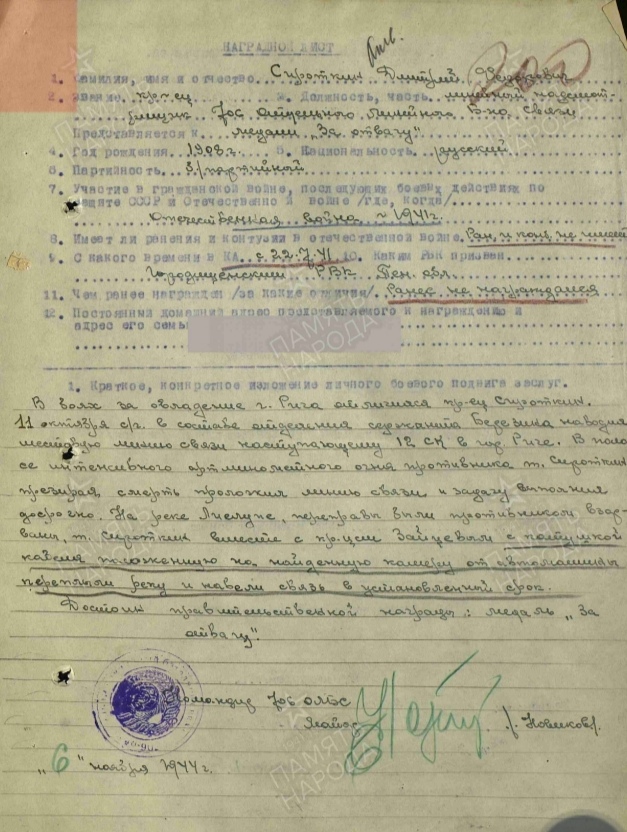 НАГРАДНОЙ ЛИСТ
1. Фамилия, имя и отчество Сироткин Дмитрий Федорович
2. Звание кр-ец 3. Должность, часть линейный надсмот-
рщик 708 отдельного линейного б-на связи
Представляется к медали "За отвагу"
4. Год рождения 1908 г. 5. Национальность русский
6. Партийность б/партийный
7. Участие в гражданской войне, последующих боевых действиях по
защите СССР и Отечественной войне /где, когда/
Отечественная война с 1941 г.
8. Имеет ли ранения и контузии в отечественной войне Ран. и конт. не имеет
9. С какого времени в КА с 22.7.41 10. Каким РВК призван
Городищенский РВК Пен. обл.
11. Чем ранее награжден /за какие отличия/ Ранее не награждался
12. Постоянный домашний адрес представляемого к награждению и
адрес его семьи
1. Краткое, конкретное изложение личного боевого подвига заслуг.
В боях за овладение г. Рига отличился кр-ец Сироткин.
11 октября с/г. в составе отделения сержанта Березина наводил
шестовую линию связи наступающему 12 СК в гор. Риге. В поло
се интенсивного артминометного огня противника т. Сироткин
презирая смерть проложил линию связи и задачу выполнил
досрочно. На реке Лиелупе, переправы были противником взор-
ваны, т. Сироткин вместе с кр-цем Зайцевым с катушкой
кабеля положенную на найденную камеру от автомашины
переплыли реку и навели связь в установленный срок.
Достоин правительственной награды: медаль "За
отвагу".
Командир 708 ОЛБС
Майор /Новиков/.
"6" ноября 1944 г.
ПАМЯТЬ НАРОДА